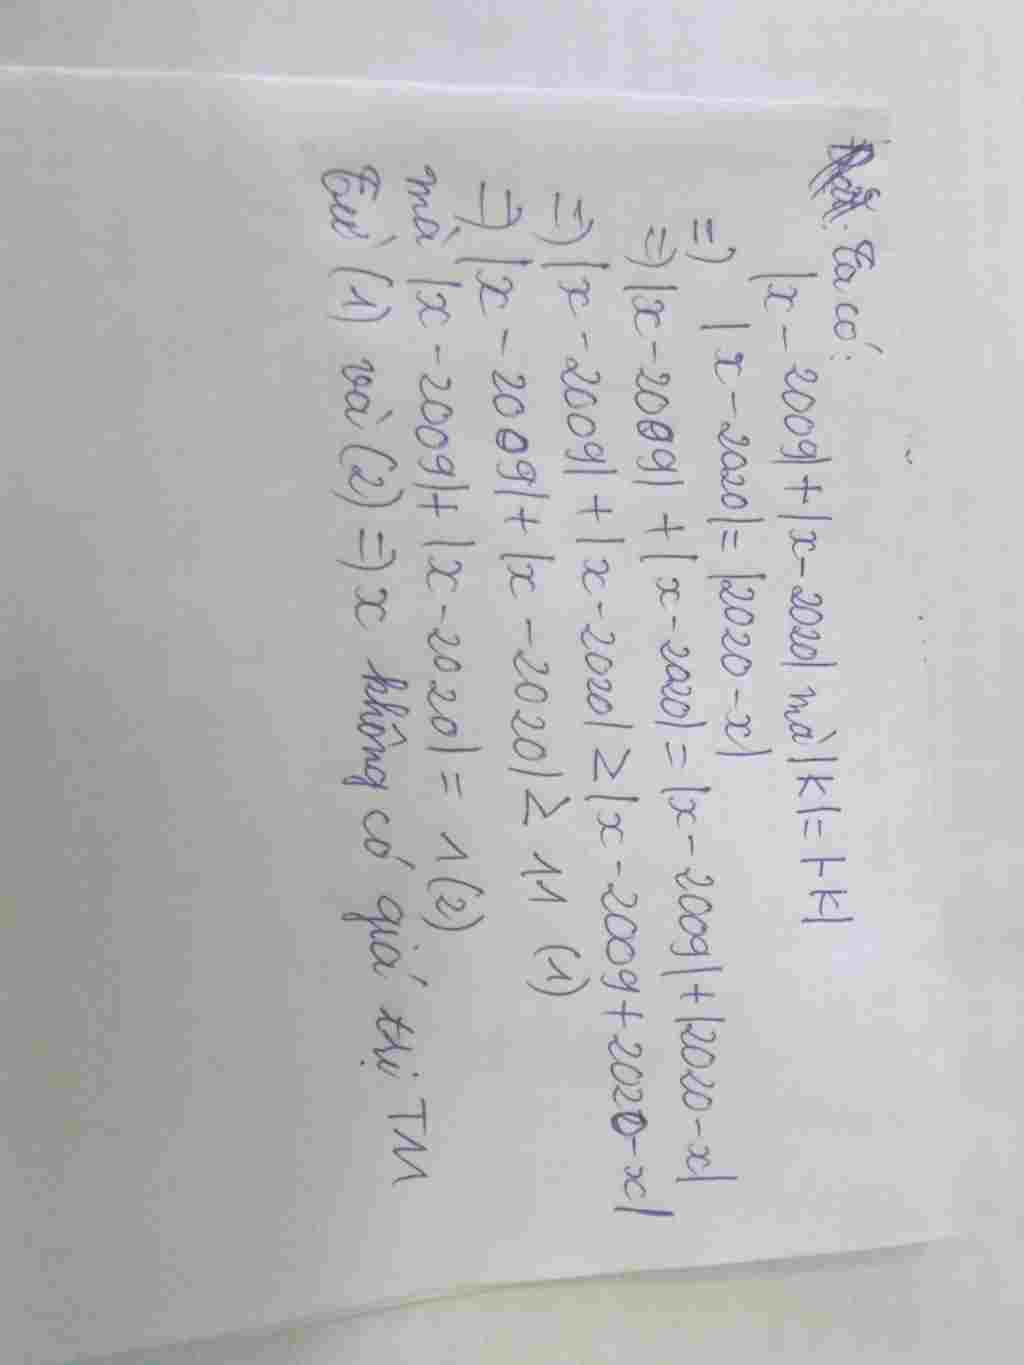 Ta có:
|x - 2009| + |x - 2020| mà |k| = |-k|
=) |x - 2020| = |2020 - x|
=) |x - 2009| + |x - 2020| = |x - 2009| + |2020 - x|
=) |x - 2009| + |x - 2020| ≥ |x - 2009 + 2020 - x|
=) |x - 2009| + |x - 2020| ≥ 11 (1)
mà |x - 2009| + |x - 2020| = 1 (2)
Từ (1) và (2) =) x không có giá trị TM